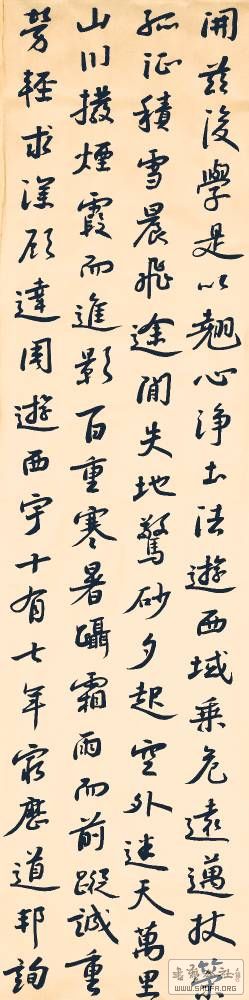 開茲後學是以翹心淨土法遊西域乘危遠邁杖策
孤征積雪晨飛途間失地驚砂夕起空外迷天萬里
山川撥煙霞而進影百重寒暑躡霜雨而前蹤誠重
勞輕求深願達周遊西宇十有七年窮歷道邦詢